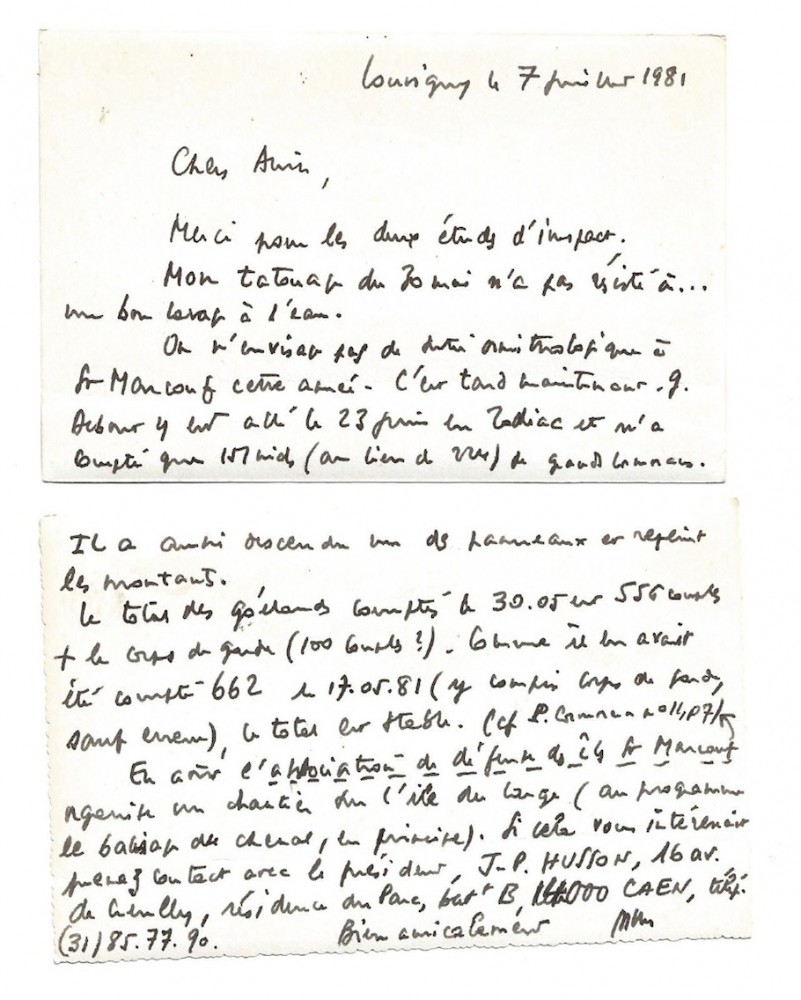 Louvigny le 7 juillet 1981
Chers Amis,
Merci pour les deux études d'impact.
Mon tatouage du 30 mai n'a pas résisté à...
un bon lavage à l'eau.
On n'envisage pas de ornithologique à
St Marcouf cette année. C'est tard maintenant. G.
Debout y est allé le 23 juin en Zodiac et n'a
compté que 151 nids (au lieu de 224) de grands cormorans.
Il a aussi descendu un des panneaux et repeint
les montants.
Le total des goélands comptés le 30.05 est 556 couples
+ le corps de garde (100 couples ?). Comme il en avait
été compté 662 le 17.05.81 (y compris corps de garde,
sauf erreur), le total est stable. (cf P. Cormoran n°14, p7)
En août l'association de défense des îles St Marcouf
organise un chantier sur l'île du large (au programme
le balisage du chenal, en principe). Si cela vous intéressait
prenez contact avec le président, J-P. HUSSON, 16 av.
de Creully, résidence du Parc, batt B, 14000 CAEN, télép.
(31) 85.77.90. Bien amicalement